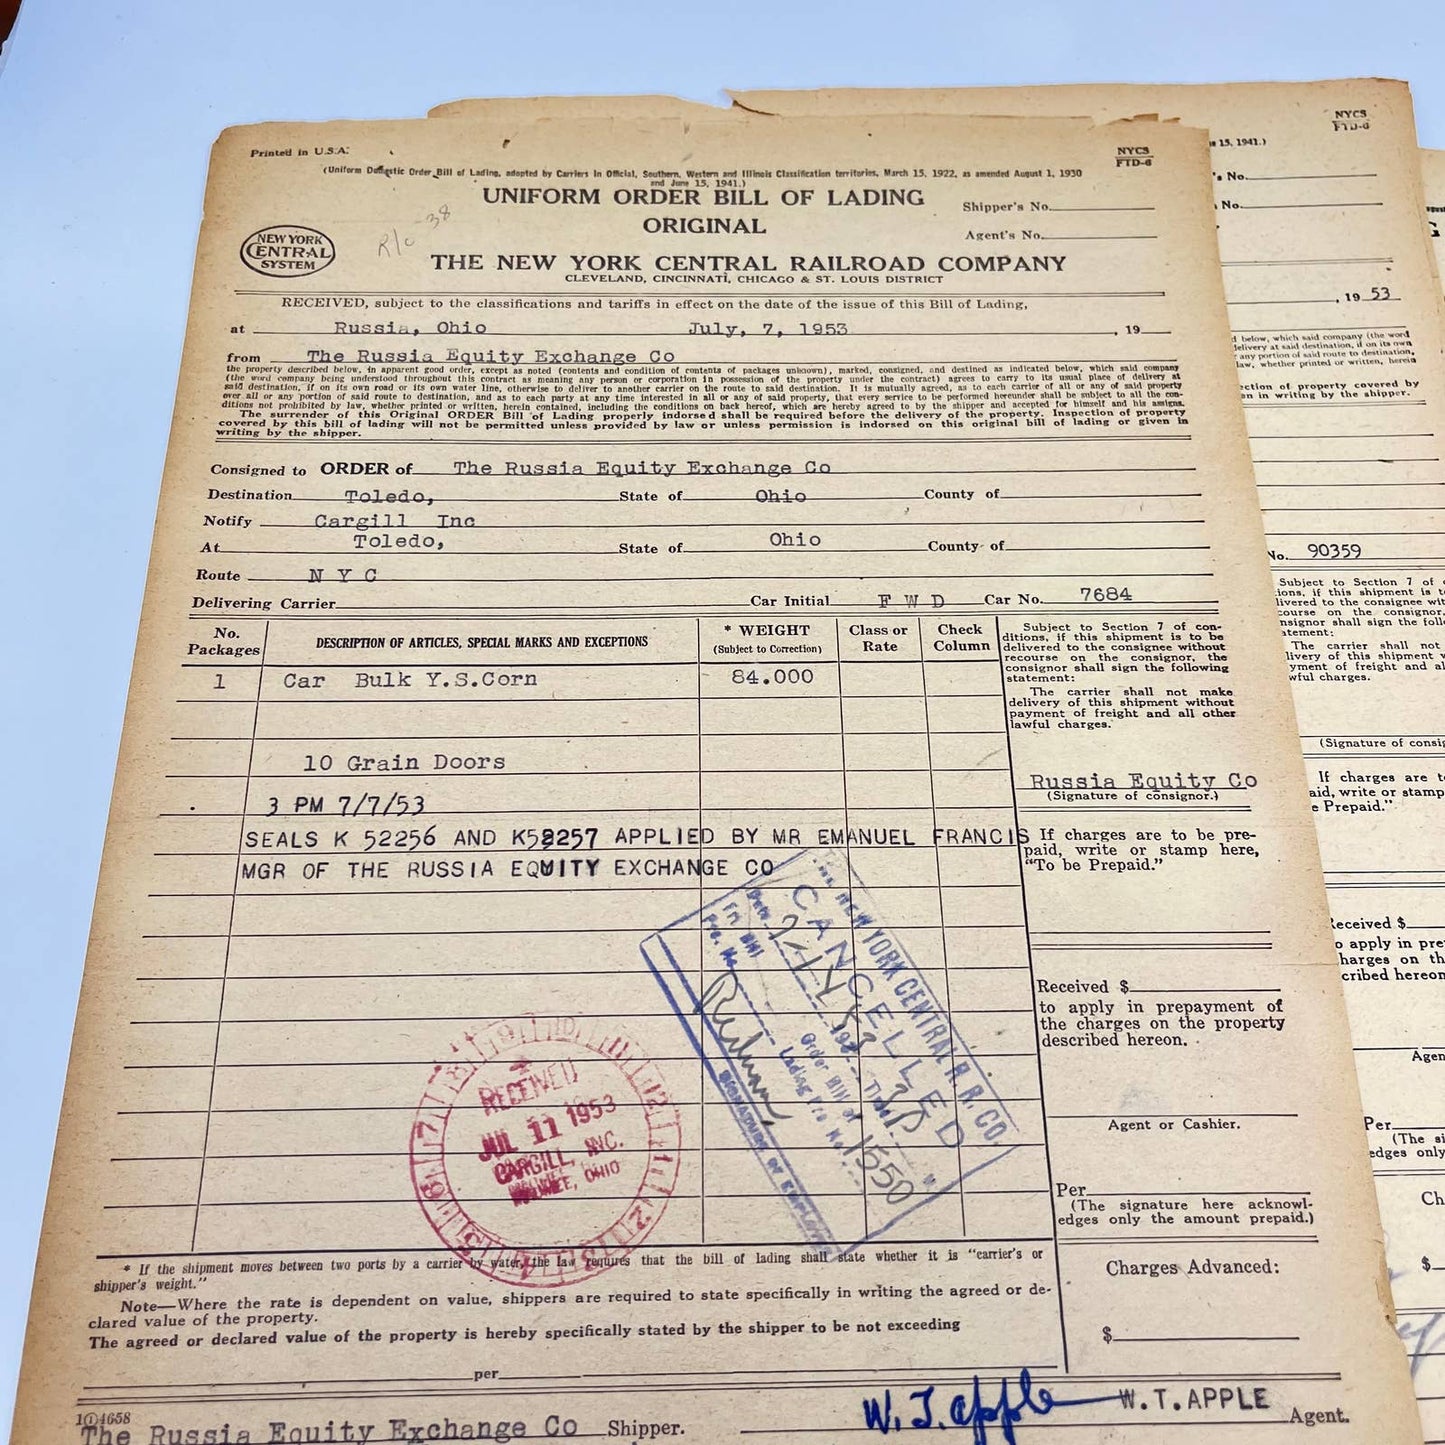 Printed in U.S.A.
NYCS
FTD-6
(Uniform Domestic Order Bill of Lading, adopted by Carriers in Official, Southern, Western and Illinois Classification territories, March 15, 1922, as amended August 1, 1930
and June 15, 1941.)
UNIFORM ORDER BILL OF LADING
ORIGINAL
Shipper's No.
Agent's No.
R/c -38
NEW YORK
CENTRAL
SYSTEM
THE NEW YORK CENTRAL RAILROAD COMPANY
CLEVELAND, CINCINNATI, CHICAGO & ST. LOUIS DISTRICT
RECEIVED, subject to the classifications and tariffs in effect on the date of the issue of this Bill of Lading,
at Russia, Ohio July, 7, 1953 , 19
from The Russia Equity Exchange Co
the property described below, in apparent good order, except as noted (contents and condition of contents of packages unknown), marked, consigned, and destined as indicated below, which said company
(the word company being understood throughout this contract as meaning any person or corporation in possession of the property under the contract) agrees to carry to its usual place of delivery at
said destination, if on its own road or its own water line, otherwise to deliver to another carrier on the route to said destination. It is mutually agreed, as to each carrier of all or any of said property
over all or any portion of said route to destination, and as to each party at any time interested in all or any of said property, that every service to be performed hereunder shall be subject to all the con-
ditions not prohibited by law, whether printed or written, herein contained, including the conditions on back hereof, which are hereby agreed to by the shipper and accepted for himself and his assigns.
The surrender of this Original ORDER Bill of Lading properly indorsed shall be required before the delivery of the property. Inspection of property
covered by this bill of lading will not be permitted unless provided by law or unless permission is indorsed on this original bill of lading or given in
writing by the shipper.
Consigned to ORDER of The Russia Equity Exchange Co
Destination Toledo, State of Ohio County of
Notify Cargill Inc
At Toledo, State of Ohio County of
Route N Y C
Delivering Carrier Car Initial F W D Car No. 7684
No.
Packages
DESCRIPTION OF ARTICLES, SPECIAL MARKS AND EXCEPTIONS
* WEIGHT
(Subject to Correction)
Class or
Rate
Check
Column
1 Car Bulk Y.S.Corn 84.000
10 Grain Doors
3 PM 7/7/53
SEALS K 52256 AND K52257 APPLIED BY MR EMANUEL FRANCIS
MGR OF THE RUSSIA EQUITY EXCHANGE CO
Subject to Section 7 of con-
ditions, if this shipment is to be
delivered to the consignee without
recourse on the consignor, the
consignor shall sign the following
statement:
The carrier shall not make
delivery of this shipment without
payment of freight and all other
lawful charges.
Russia Equity Co
(Signature of consignor.)
If charges are to be pre-
paid, write or stamp here,
"To be Prepaid."
Received $
to apply in prepayment of
the charges on the property
described hereon.
Agent or Cashier.
Per
(The signature here acknowl-
edges only the amount prepaid.)
Charges Advanced:
$
THE NEW YORK CENTRAL R. R. CO.
CANCELLED
Date
Frt. Bill
Pro. No.
Order Bill of
Lading Pro No. 1550
SIGNATURE OF EMPLOYEE
RECEIVED
JUL 11 1953
CARGILL, INC.
MAUMEE, OHIO
7 8 9 10 11 12 1 2 3 4 5 6
* If the shipment moves between two ports by a carrier by water, the law requires that the bill of lading shall state whether it is "carrier's or
shipper's weight."
Note—Where the rate is dependent on value, shippers are required to state specifically in writing the agreed or de-
clared value of the property.
The agreed or declared value of the property is hereby specifically stated by the shipper to be not exceeding
per
14658
The Russia Equity Exchange Co Shipper.
W. T. Apple W.T. APPLE Agent.
NYCS
FTD-6
15, 1941.)
's No.
No.
, 19 53
d below, which said company (the word
delivery at said destination, if on its own
any portion of said route to destination,
law, whether printed or written, herein
ection of property covered by
en in writing by the shipper.
No. 90359
Subject to Section 7 of
ions, if this shipment is
livered to the consignee
course on the consignor,
nsignor shall sign the
atement:
The carrier shall not
livery of this shipment
yment of freight and
wful charges.
(Signature of
If charges are
aid, write or stamp
e Prepaid."
Received $
to apply in
harges on the
cribed hereon
Per
(The
edges only
$